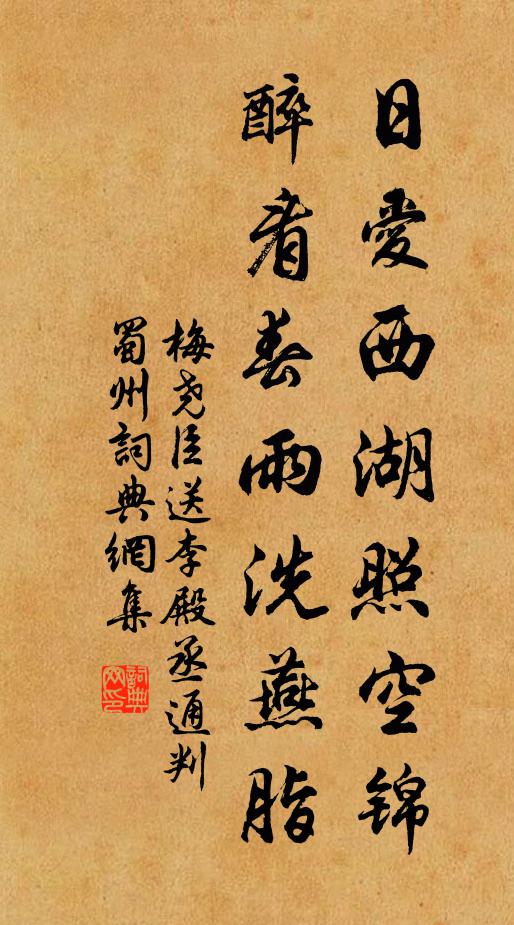 日愛西湖照空锦
醉看春雨洗燕脂
梅尧臣送李殿丞通判
蜀州詞典網集
詞典
网印